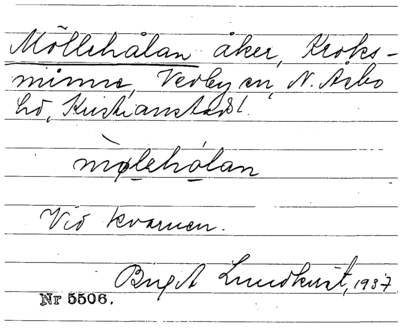 Möllehålan åker, Kroks-
minne, Vedby sn, N. Åsbo
hd, Kristianstads l.
mølehålan
Vid kvarnen.
Birgit Lundkvist, 1937
Nr 5506.